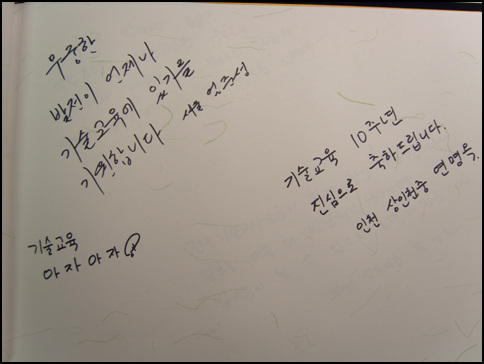 무궁한
발전이 언제나
기술교육에 있기를
기원합니다 서울
기술교육 10주년
진심으로 축하드립니다.
인천 상인천중 연명옥.
기술교육
아자 아자